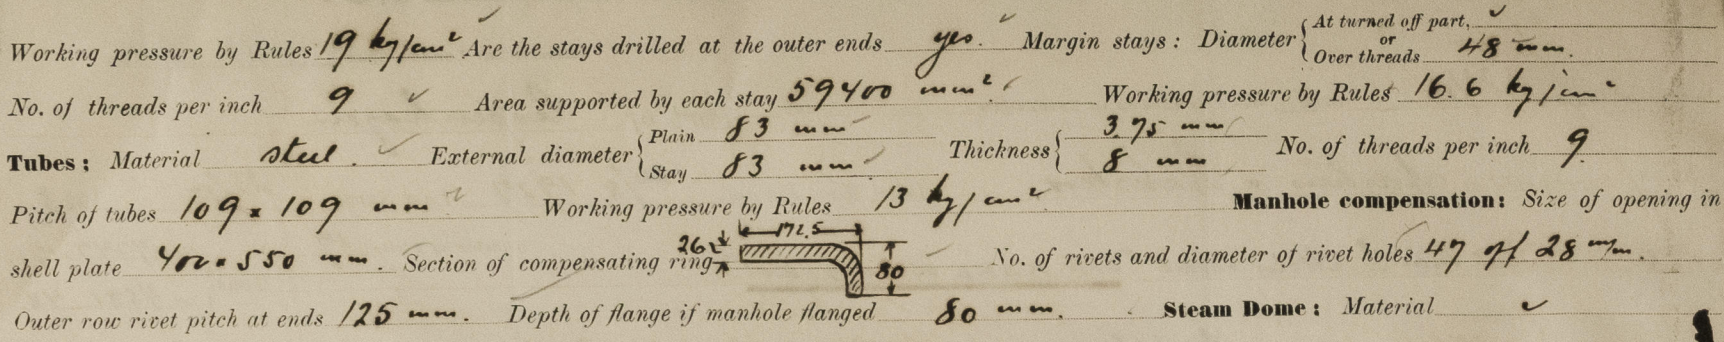 Working pressure by Rules 19 kg/cm² Are the stays drilled at the outer ends yes. Margin stays: Diameter { At turned off part, or Over threads 48 mm.
No. of threads per inch 9 Area supported by each stay 59400 mm². Working pressure by Rules 16.6 kg/cm²
Tubes: Material steel. External diameter { Plain 83 mm Stay 83 mm Thickness { 3.75 mm 8 mm No. of threads per inch 9
Pitch of tubes 109 x 109 mm Working pressure by Rules 13 kg/cm² Manhole compensation: Size of opening in
shell plate 400 x 550 mm. Section of compensating ring 26 172.5 80 No. of rivets and diameter of rivet holes 47 off 28 m/m.
Outer row rivet pitch at ends 125 mm. Depth of flange if manhole flanged 80 mm. Steam Dome: Material